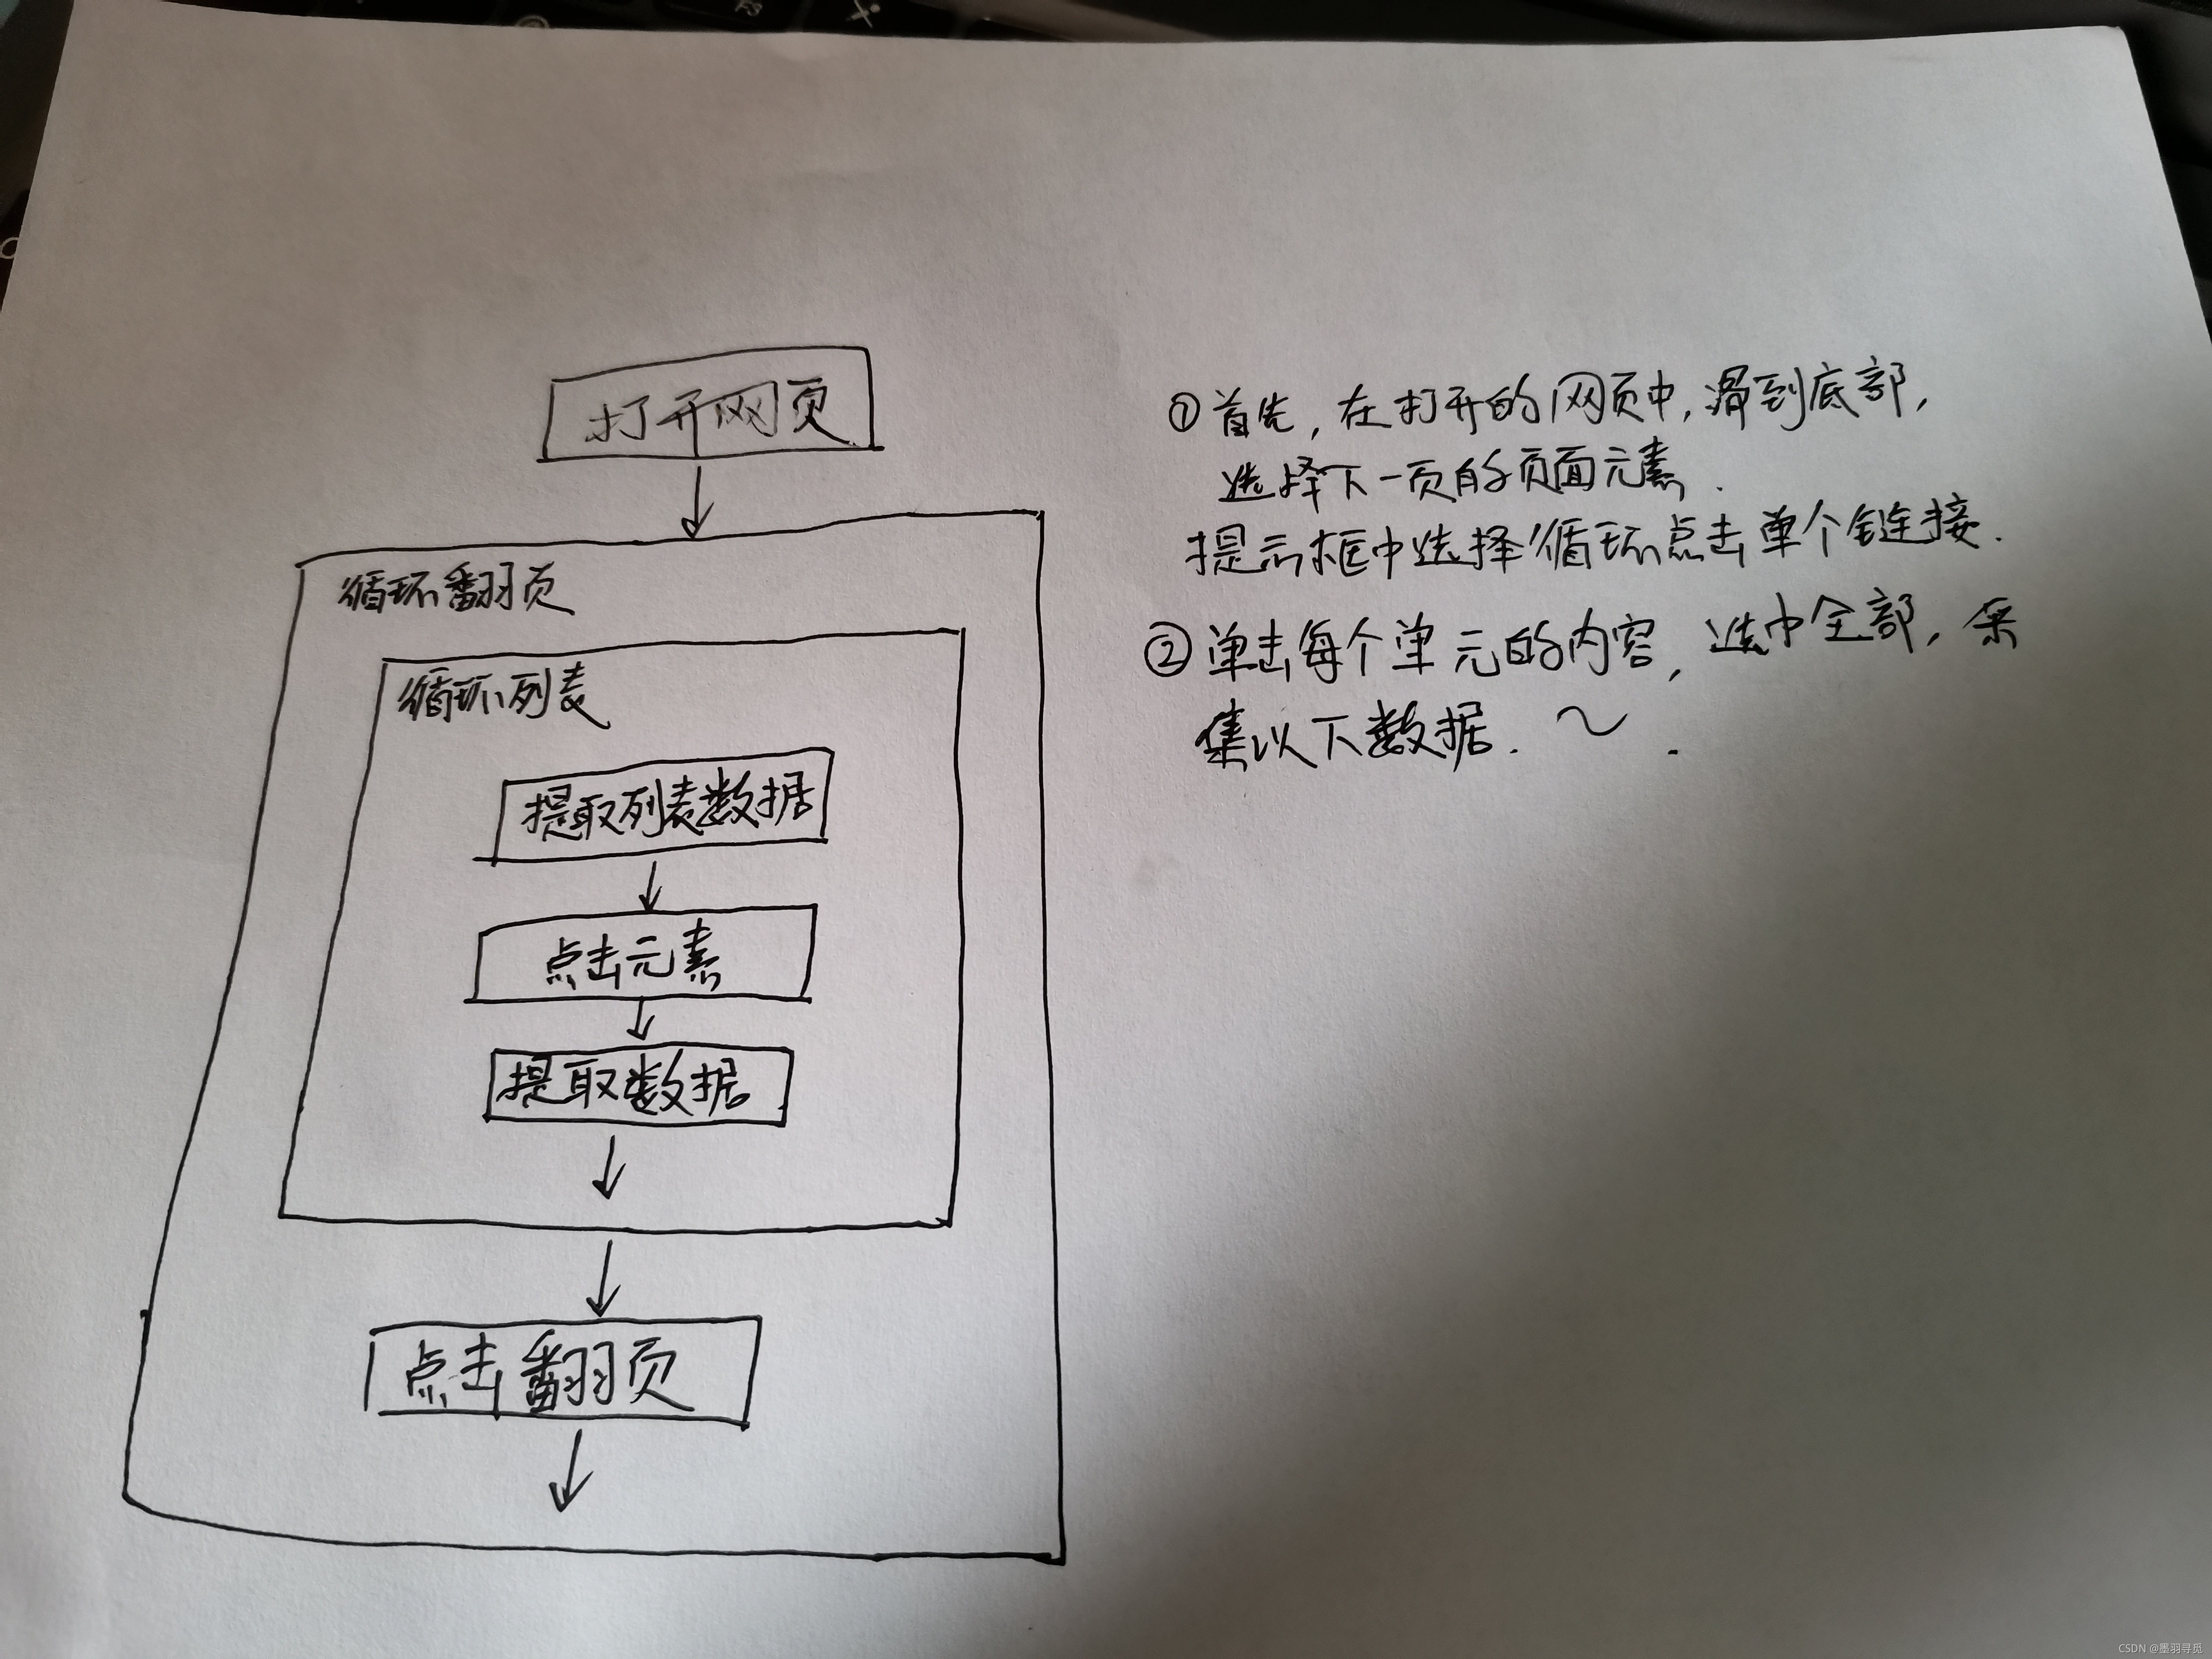 F5
打开网页
循环翻页
循环列表
提取列表数据
点击元素
提取数据
点击翻页
①首先,在打开的网页中,滑到底部,
选择下一页的页面元素.
提示框中选择循环点击单个链接.
②单击每个单元的内容,选中全部,采
集以下数据. ~ .
CSDN @墨羽寻觅